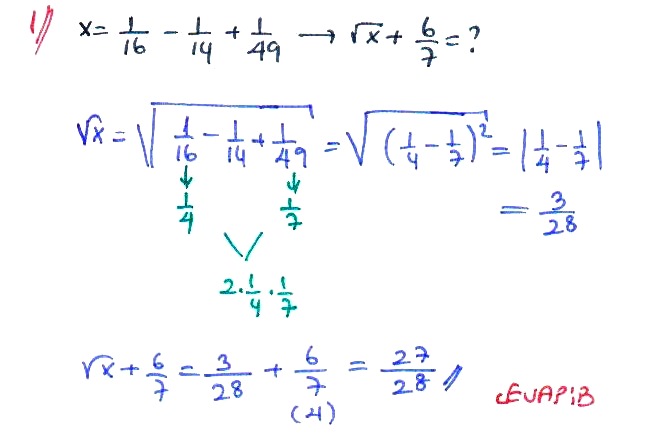 1) x = 1/16 - 1/14 + 1/49 → √x + 6/7 = ?
√x = √(1/16 - 1/14 + 1/49) = √((1/4 - 1/7)²) = |1/4 - 1/7|
↓ ↓
1/4 1/7 = 3/28
2·1/4·1/7
√x + 6/7 = 3/28 + 6/7 = 27/28 //
(4)
CEVAP:B